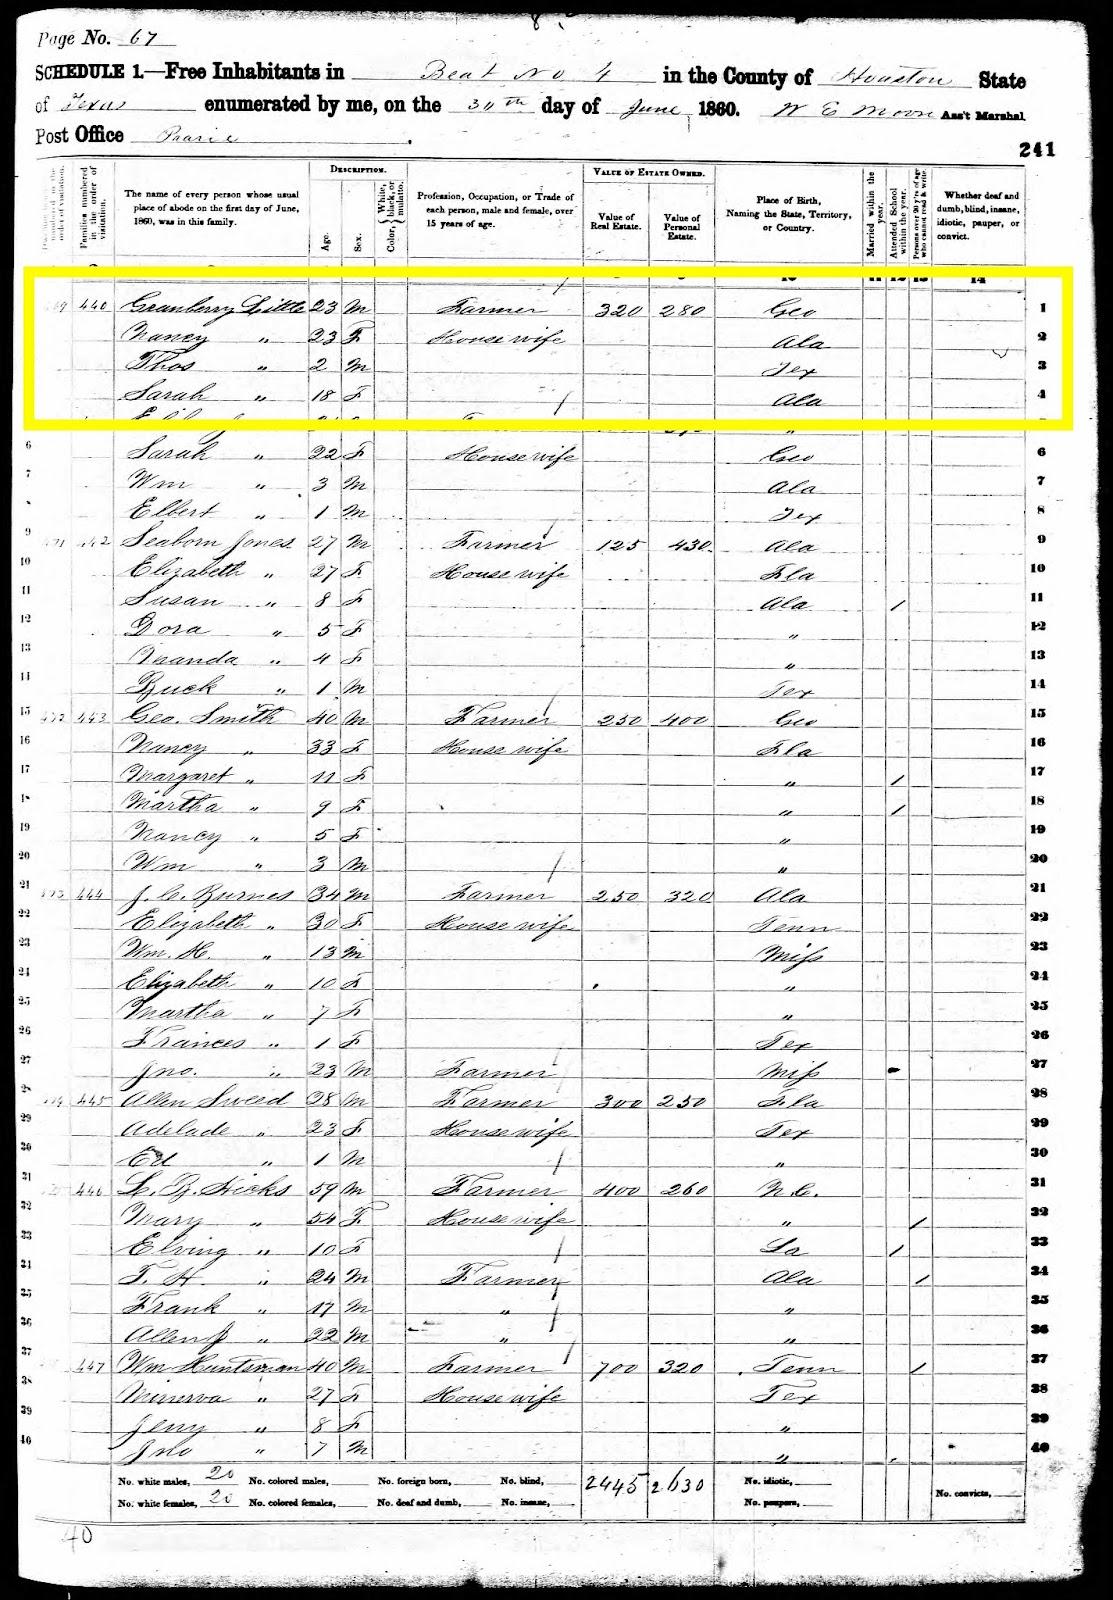 Page No. 67
SCHEDULE 1.—Free Inhabitants in Beat No 4 in the County of Houston State
of Texas enumerated by me, on the 30th day of June 1860. W E Moore Ass't Marshal.
Post Office Prarie
241
Families numbered in the order of visitation.
The name of every person whose usual place of abode on the first day of June, 1860, was in this family.
DESCRIPTION.
Age.
Sex.
Color, White, black, or mulatto.
Profession, Occupation, or Trade of each person, male and female, over 15 years of age.
VALUE OF ESTATE OWNED.
Value of Real Estate.
Value of Personal Estate.
Place of Birth, Naming the State, Territory, or Country.
Married within the year.
Attended School within the year.
Persons over 20 y'rs of age who cannot read & write.
Whether deaf and dumb, blind, insane, idiotic, pauper, or convict.
440 Granberry Little 23 M Farmer 320 280 Geo 1
Nancy " 23 F House wife Ala 2
Thos " 2 M Tex 3
Sarah " 18 F Ala 4
6 Sarah " 22 F House wife Geo 6
7 Wm " 3 M Ala 7
Elbert " 1 M Tex 8
9 Seaborn Jones 27 M Farmer 125 430 Ala 9
10 Elizabeth " 27 F House wife Fla 10
11 Susan " 8 F Ala / 11
12 Dora " 5 F " 12
13 Manda " 4 F " 13
Buck " 1 M Tex 14
15 443 Geo. Smith 40 M Farmer 250 400 Geo 15
16 Nancy " 33 F House wife Fla 16
17 Margaret " 11 F " / 17
Martha " 9 F " / 18
19 Nancy " 5 F " 19
20 Wm " 3 M " 20
21 444 J. C. Burnes 34 M Farmer 250 320 Ala 21
22 Elizabeth " 30 F House wife Tenn 22
23 Wm. H. " 13 M Miss 23
24 Elizabeth " 10 F " 24
25 Martha " 7 F " 25
26 Frances " 1 F Tex 26
27 Jno. " 23 M Farmer Miss 27
445 Allen Sweed 38 M Farmer 300 250 Fla 28
29 Adelade " 23 F House wife Tex 29
30 Ed " 1 M " 30
31 446 L. B. Hicks 59 M Farmer 400 260 N.C. 31
32 Mary " 54 F House wife " / 32
33 Elving " 10 F La / 33
34 T. H. " 24 M Farmer Ala / 34
35 Frank " 17 M " " 35
36 Allen J " 22 M " " 36
37 447 Wm Huntsman 40 M Farmer 700 320 Tenn / 37
38 Minerva " 27 F House wife Tex 38
39 Jeny " 8 F " 39
40 Jno " 7 M " 40
No. white males, 20 No. colored males, No. foreign born, No. blind, 2445 2630 No. idiotic,
No. white females, 20 No. colored females, No. deaf and dumb, No. insane, No. paupers, No. convicts,
40